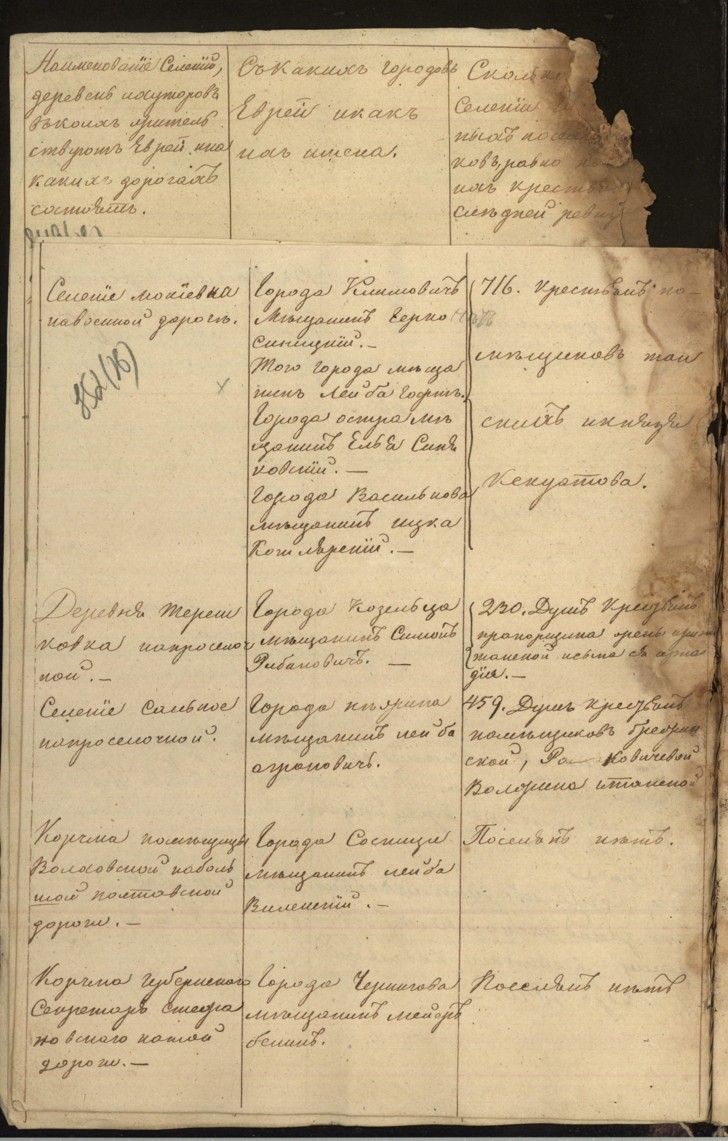 Наименованіе Селеній,
деревень и хуторовъ
въ коихъ жительствуютъ Евреи и на
какихъ дорогахъ
состоятъ.
Съ какихъ городовъ
Евреи и какъ
ихъ имена.
Сколько
Селеніи
ковъ, равно
ихъ крестьянъ
слѣдней ревиз
Селеніе мокіевка
на военной дорогѣ.
352(об)
Города Климовичъ
мѣщанинъ Берко
Синицкій. —
Того города мѣща
нинъ Лейба Гофтъ.
Города остра мѣ
щанинъ Елья Синя
ковскій. —
Города Василькова
мѣщанинъ ицка
Котлярскій. —
716. Крестьянъ по-
мѣщиковъ
скихъ и князя
Кекуатова.
Деревня Тереш
ковка на проселоч
ной. —
Города Козельца
мѣщанинъ Симонъ
Рабановичъ. —
230. Душъ
прапорщика
Селеніе Сальное
на проселочной.
Города
мѣщанинъ лейба
ароновичъ.
459. Душъ
помѣщиковъ
ской,
Волжина
Корчма помѣщицы
Волховской на боль
шой полтавской
дороги. —
Города Сосницы
мѣщанинъ лейба
Виленскій. —
Поселянъ нѣтъ.
Корчма Губернскаго
Секретаря Стефа
новскаго на той
дороги. —
Города Чернигова
мѣщанинъ мейеръ
белинъ.
Поселянъ нѣтъ